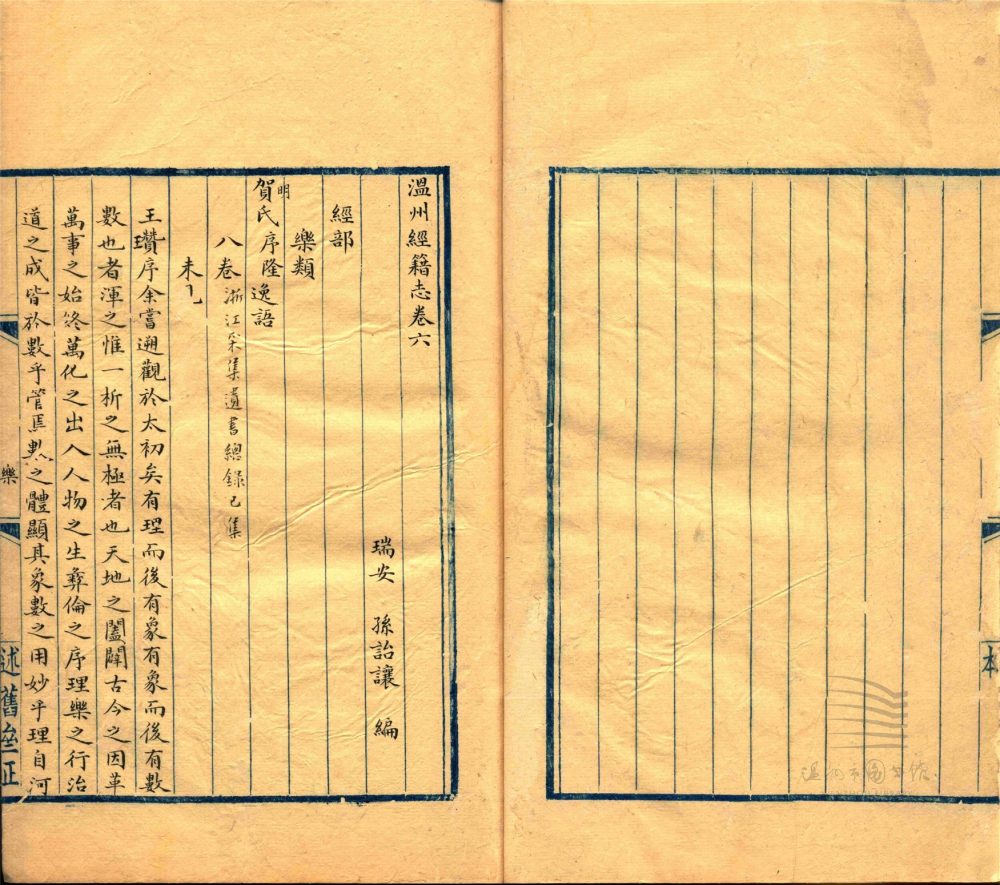 溫州經籍志卷六
瑞安 孫詒讓 編
經部
樂類
明賀氏序隆逸語
八卷 浙江采集遺書總錄己集
未
王瓚序余嘗遡觀於太初矣有理而後有象有象而後有數
數也者渾之惟一析之無極者也天地之闔闢古今之因革
萬事之始終萬化之出入人物之生彝倫之序理樂之行治
道之成皆於數乎管焉數之體顯其象數之用妙乎理自河
樂
述舊
本
溫州市圖書館